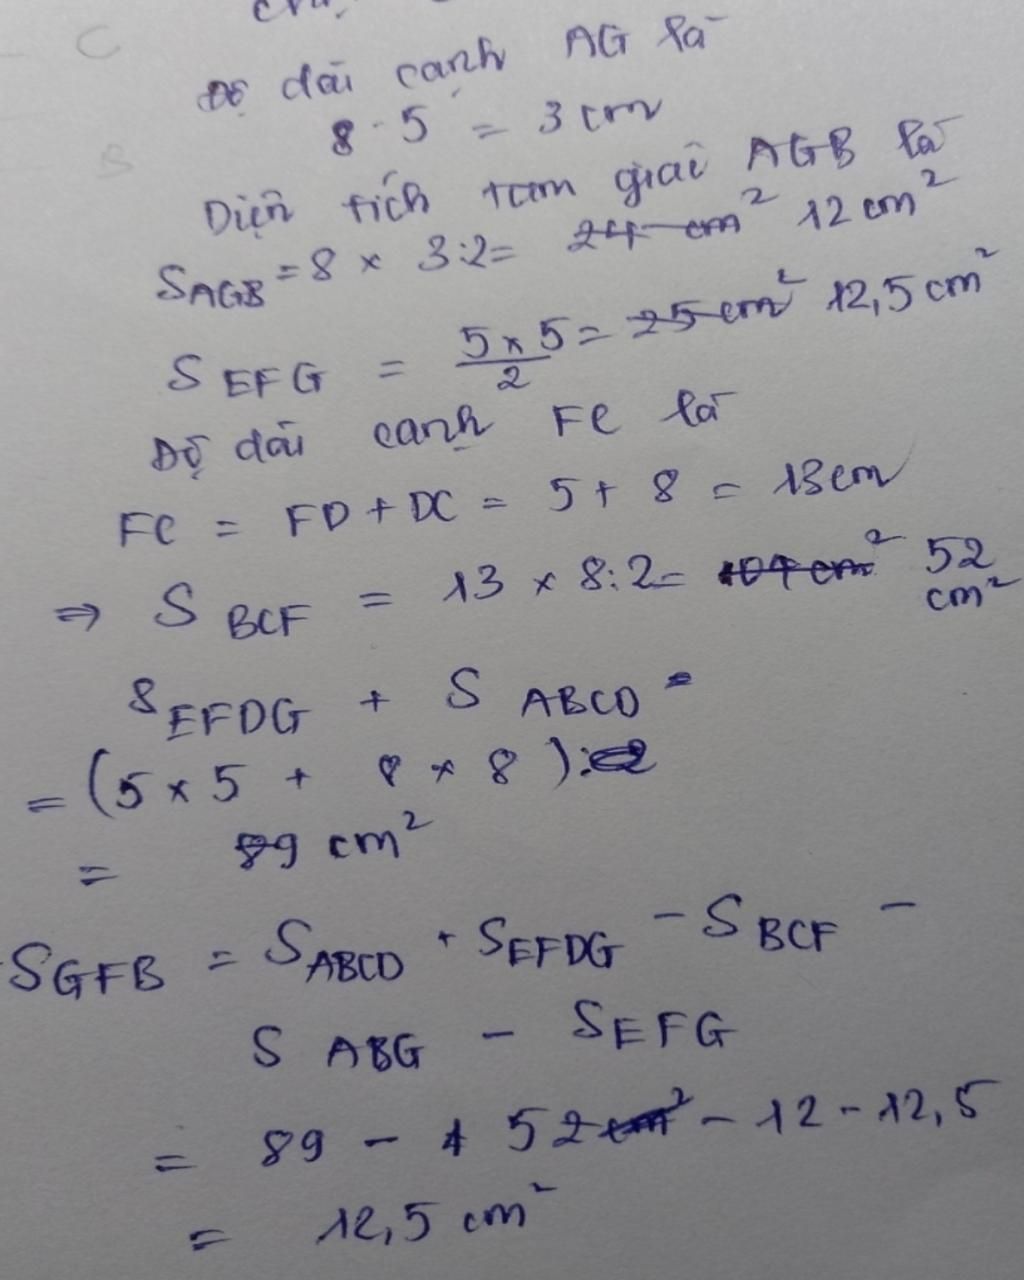 Độ dài cạnh AG là
8 - 5 = 3 cm
Diện tích tam giác AGB là
S AGB = 8 x 3:2 = 24 cm² 12 cm²
S EFG = 5 x 5 / 2 = 25 cm² 12,5 cm²
Độ dài cạnh FC là
FC = FD + DC = 5 + 8 = 13 cm
=> S BCF = 13 x 8:2 = 104 cm² 52 cm²
S EFDG + S ABCD =
= (5 x 5 + 8 x 8) :2
= 89 cm²
S GFB = S ABCD + S EFDG - S BCF -
S ABG - S EFG
= 89 - 52 cm² - 12 - 12,5
= 12,5 cm²